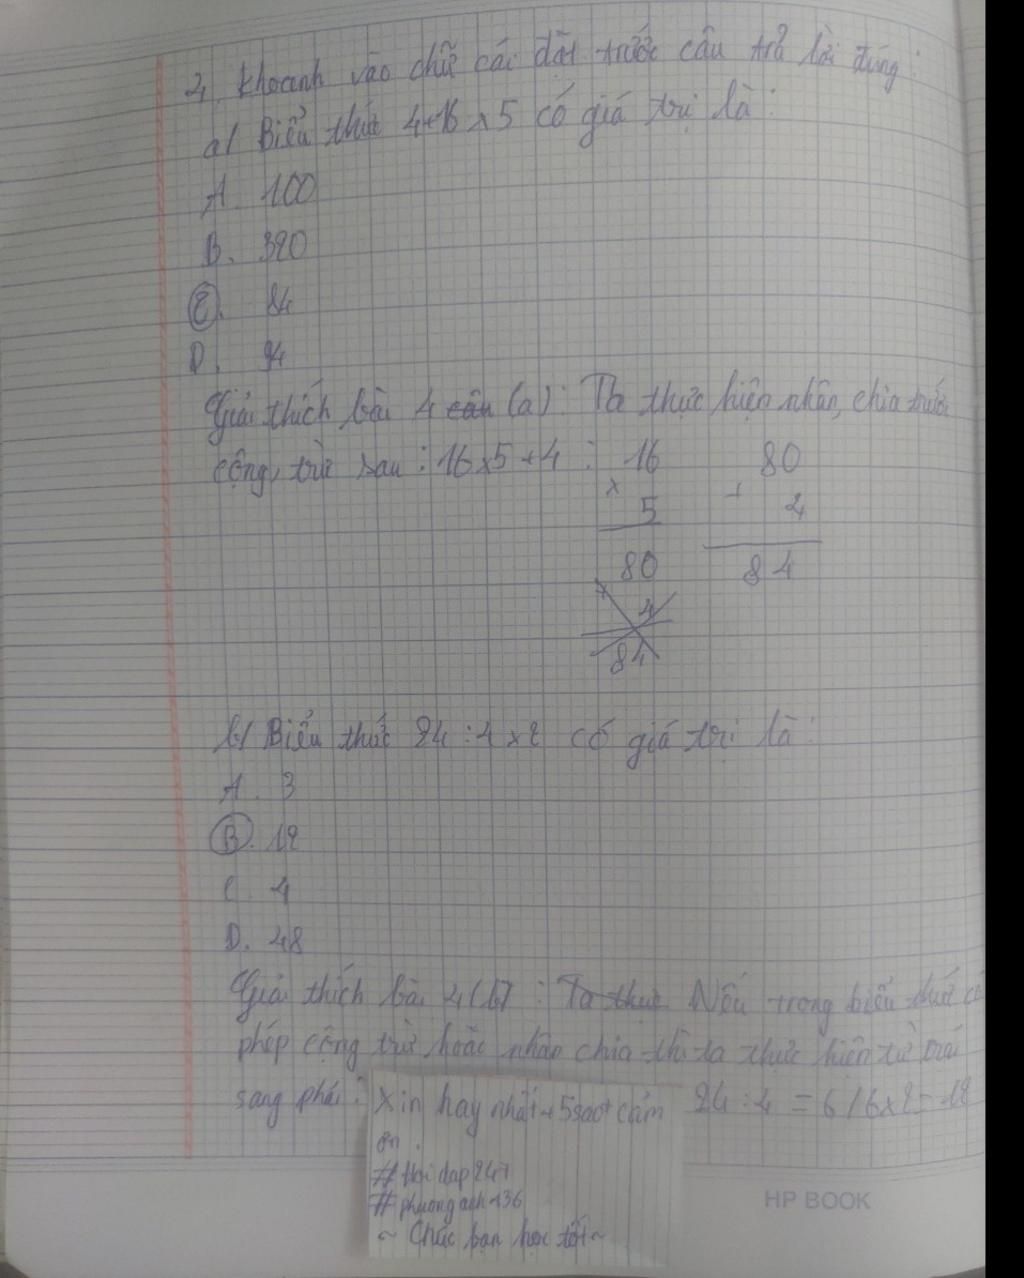 4, Khoanh vào chữ cái đặt trước câu trả lời đúng:
a/ Biểu thức 4+16 x 5 có giá trị là:
A. 100
B. 320
C. 84
D. 94
Giải thích bài 4 câu (a): Ta thực hiện nhân, chia trước
cộng, trừ sau: 16x5+4: 16 80
x 5 + 4
80 84
+ 4
84
b/ Biểu thức 24:4x2 có giá trị là:
A. 3
B. 12
C. 4
D. 48
Giải thích bài 4(b): Ta thực Nếu trong biểu thức có
phép cộng trừ hoặc nhân chia thì ta thực hiện từ trái
sang phải: 24:4 = 6 / 6x2=12
Xin hay nhất+5sao+cảm
ơn.
#Hoidap247
#phuonganh136
~ Chúc bạn học tốt~
HP BOOK